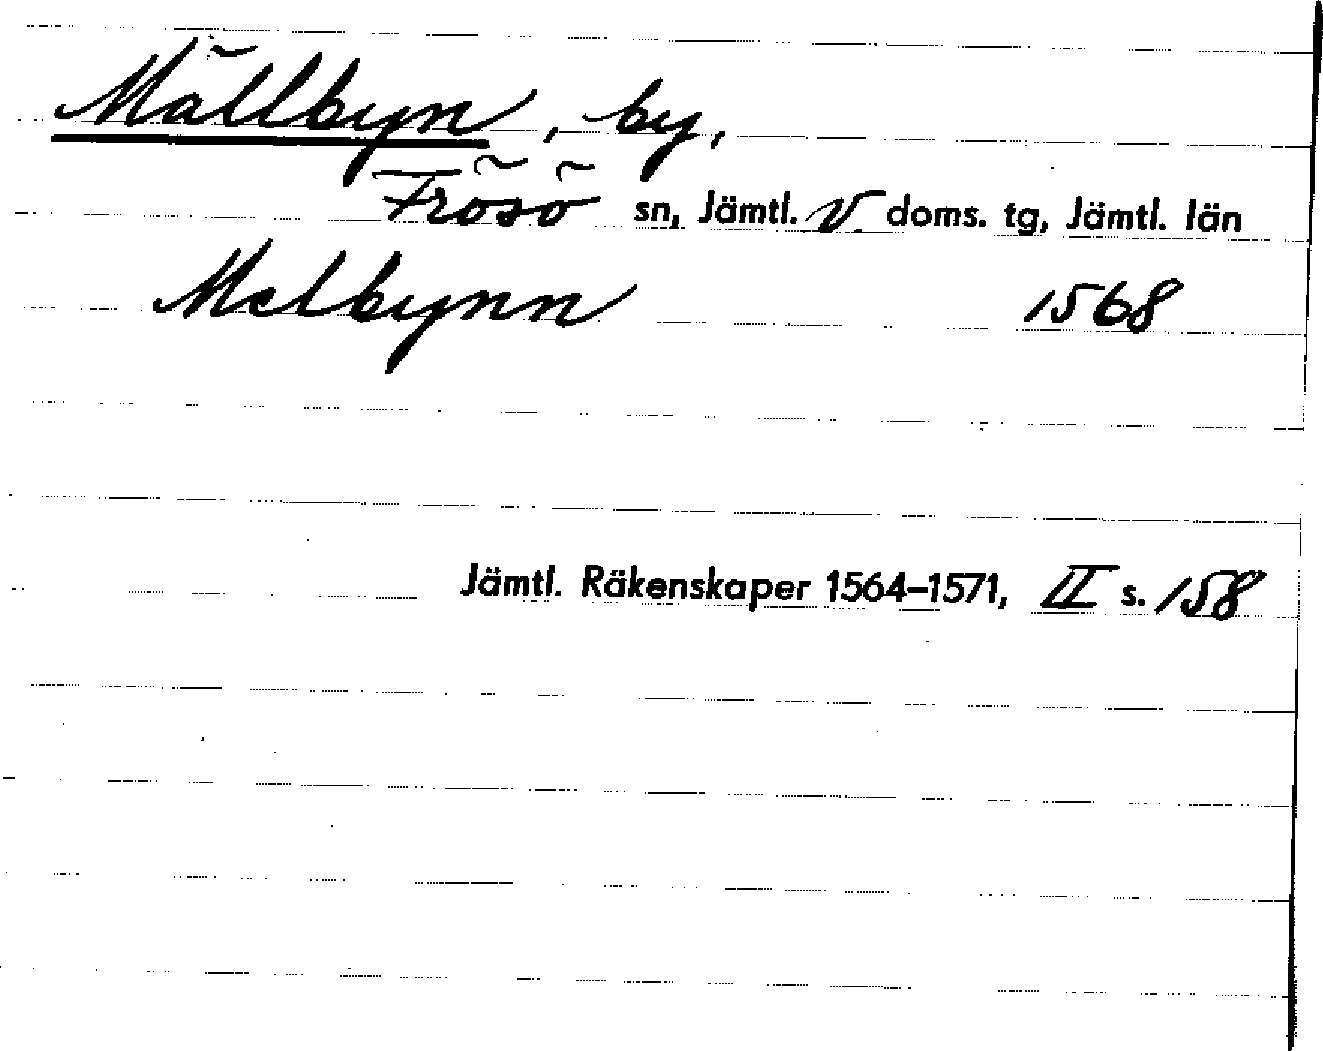 Mällbyn, by,
Frösö sn, Jämtl. V doms. tg, Jämtl. län
Melbynn 1568
Jämtl. Räkenskaper 1564–1571, II s. 158